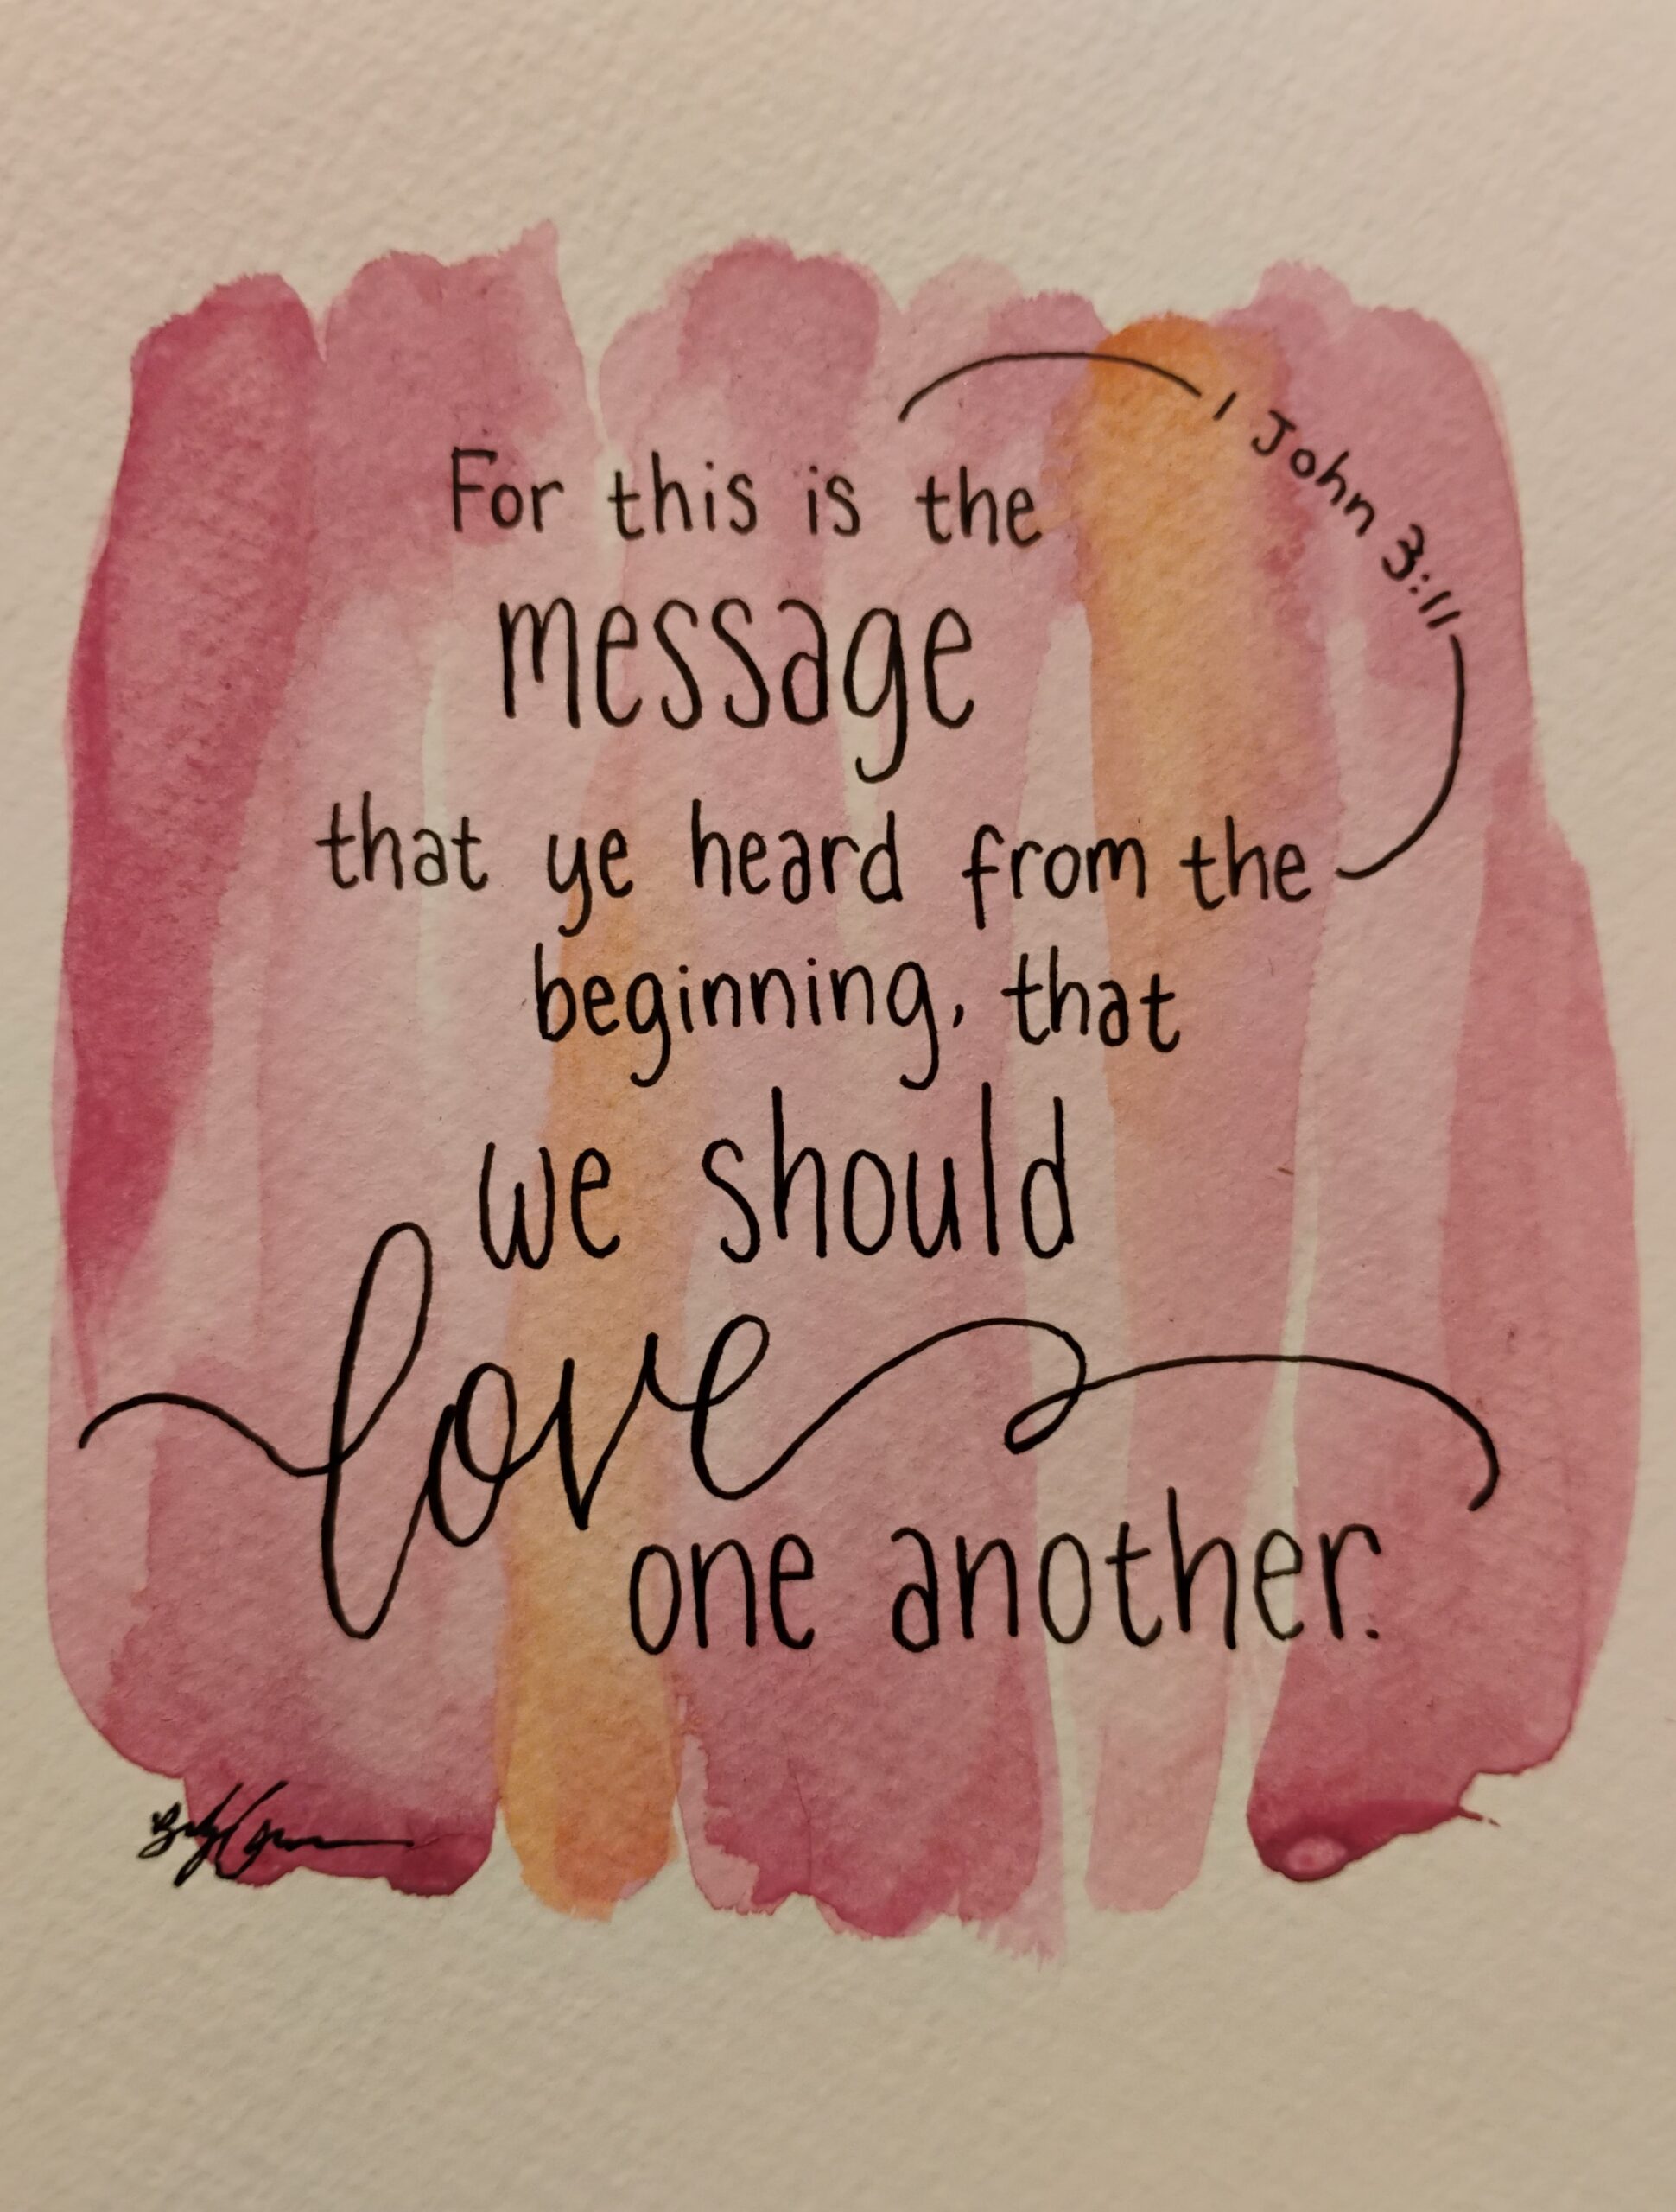 1 John 3:11
For this is the
message
that ye heard from the
beginning, that
we should
love
one another.